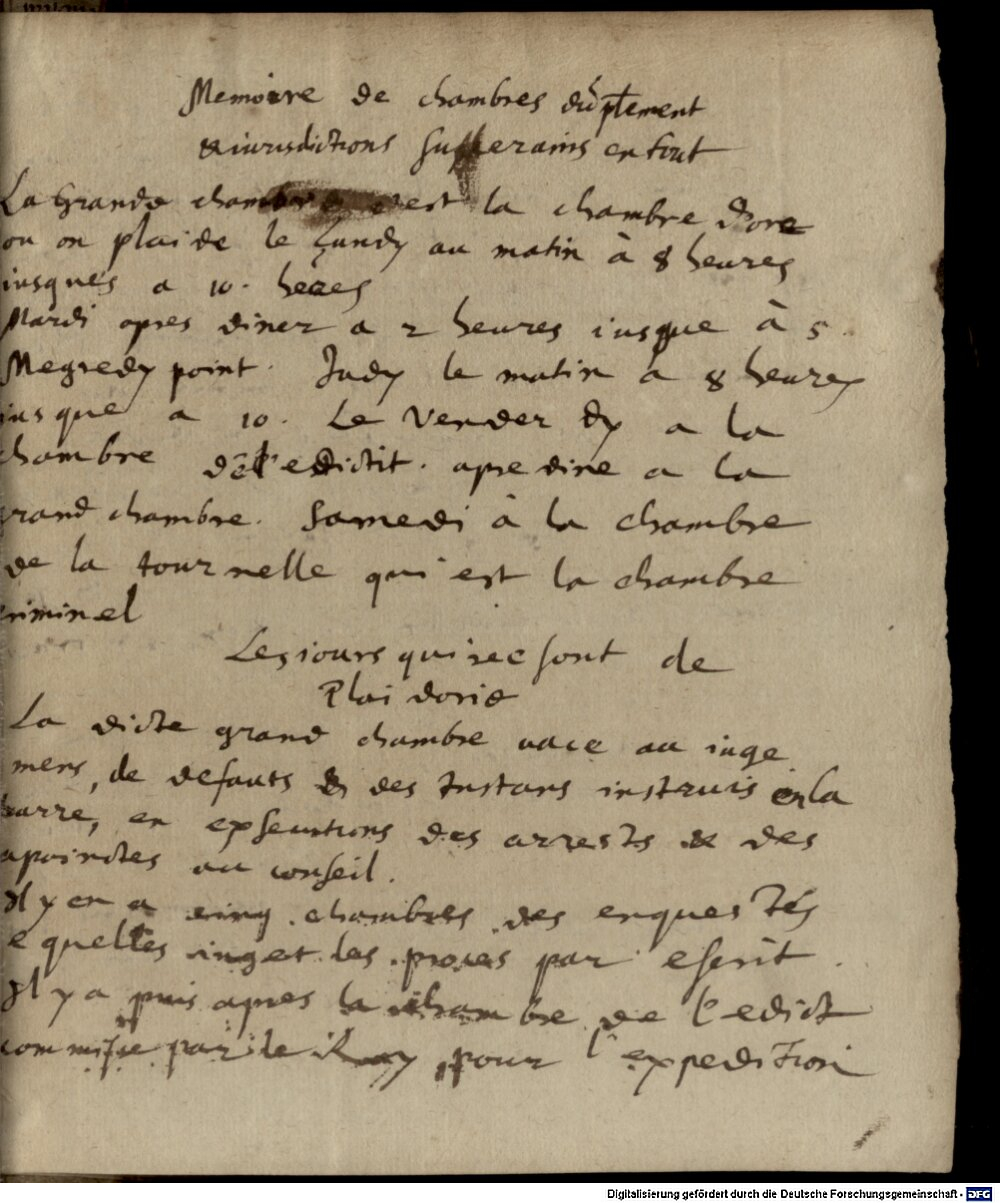 Memoire de chambres du ptement
& iurisdictions sufferains en tout
La Grande chambre c'est la chambre d'ore
ou on plaide le Lundy au matin à 8 heures
iusques a 10. heeres
Mardi apres diner a 2 heures iusque à 5.
Megredy point. Judy le matin a 8 heures
iusque a 10. Le Vender dy a la
chambre de l'edictit. apre dine a la
grand chambre. Samedi à la chambre
de la tournelle qui est la chambre
criminel
Les iours qui ree sont de
Plaidorie
La dicte grand chambre vace au iuge
mens, de defauts & des Instans instruis en la
barre, en exseutions des arrests & des
apoinctes au conseil.
Il y en a cinq chambres des enquestés
e quelles iuget les proces par escrit.
Il y a puis apres la chambre de l'edict
commisse par le Roy pour l'expedition
Digitalisierung gefördert durch die Deutsche Forschungsgemeinschaft - DFG